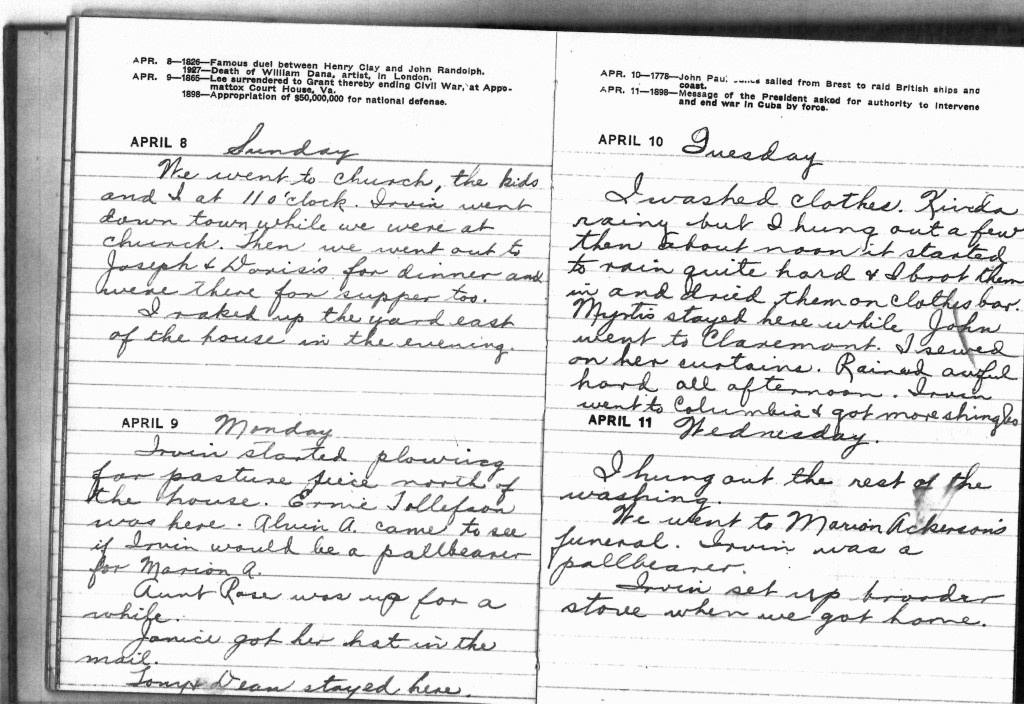 APR. 8—1826—Famous duel between Henry Clay and John Randolph.
1927—Death of William Dana, artist, in London.
APR. 9—1865—Lee surrendered to Grant thereby ending Civil War, at Appo-
mattox Court House, Va.
1898—Appropriation of $50,000,000 for national defense.
APRIL 8 Sunday
We went to church, the kids
and I at 11 o'clock. Irvin went
down town while we were at
church. Then we went out to
Joseph & Doris's for dinner and
were there for supper too.
I raked up the yard east
of the house in the evening.
APRIL 9 Monday
Irvin started plowing
for pasture piece north of
the house. Ernie Tollefson
was here. Alvin A. came to see
if Irvin would be a pallbearer
for Marion A.
Aunt Rose was up for a
while.
Janice got her hat in the
mail.
Tony & Dean stayed here.
APR. 10—1778—John Paul Jones sailed from Brest to raid British ships and
coast.
APR. 11—1898—Message of the President asked for authority to intervene
and end war in Cuba by force.
APRIL 10 Tuesday
I washed clothes. Kinda
rainy but I hung out a few
then about noon it started
to rain quite hard & I brot them
in and dried them on clothes bar.
Myrtis stayed here while John
went to Claremont. I sewed
on her curtains. Rained awful
hard all afternoon. Irvin
went to Columbia & got more shingles
APRIL 11 Wednesday.
I hung out the rest of the
washing.
We went to Marion Ackerson's
funeral. Irvin was a
pallbearer.
Irvin set up brooder
stove when we got home.